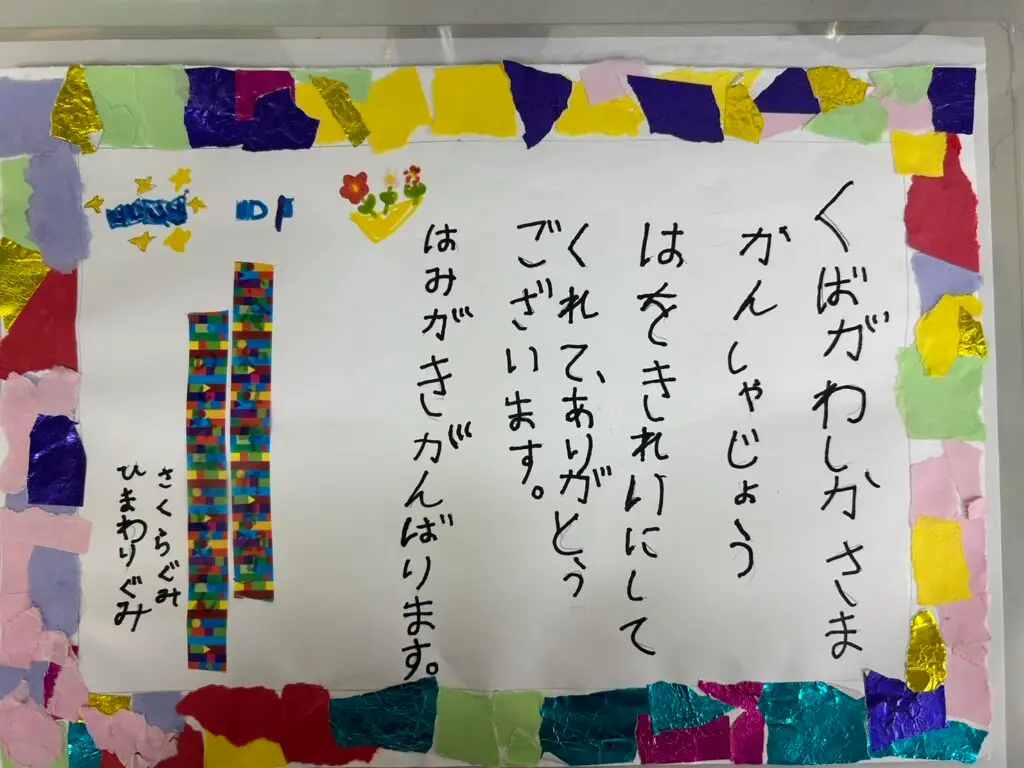 くばがわしかさま
かんしゃじょう
はをきれいにして
くれて、ありがとう
ございます。
はみがきがんばります。
さくらぐみ
ひまわりぐみ